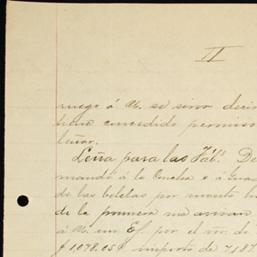 II
ruego á U. se sirva decir
tiene concedido permiso
leñar.
Leña para las Fáb. De
mandé á la Concha e á
de las boletas por cuenta
de la primera me avisan
á U. un Ef. por el río de
$1,078.05 importe de 7,187